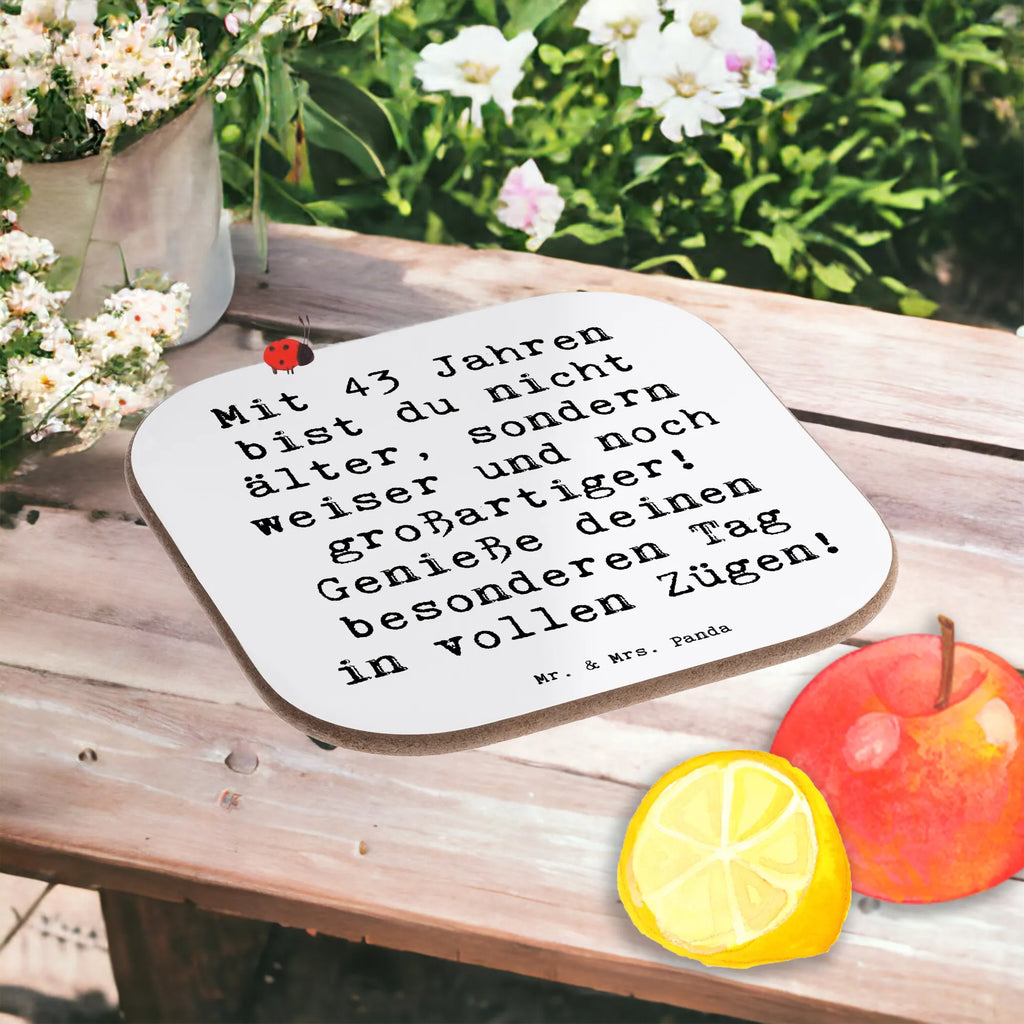 Mit 43 Jahren
bist du nicht
älter, sondern
weiser und noch
großartiger!
Genieße deinen
besonderen Tag
in vollen Zügen!
Mr. & Mrs. Panda